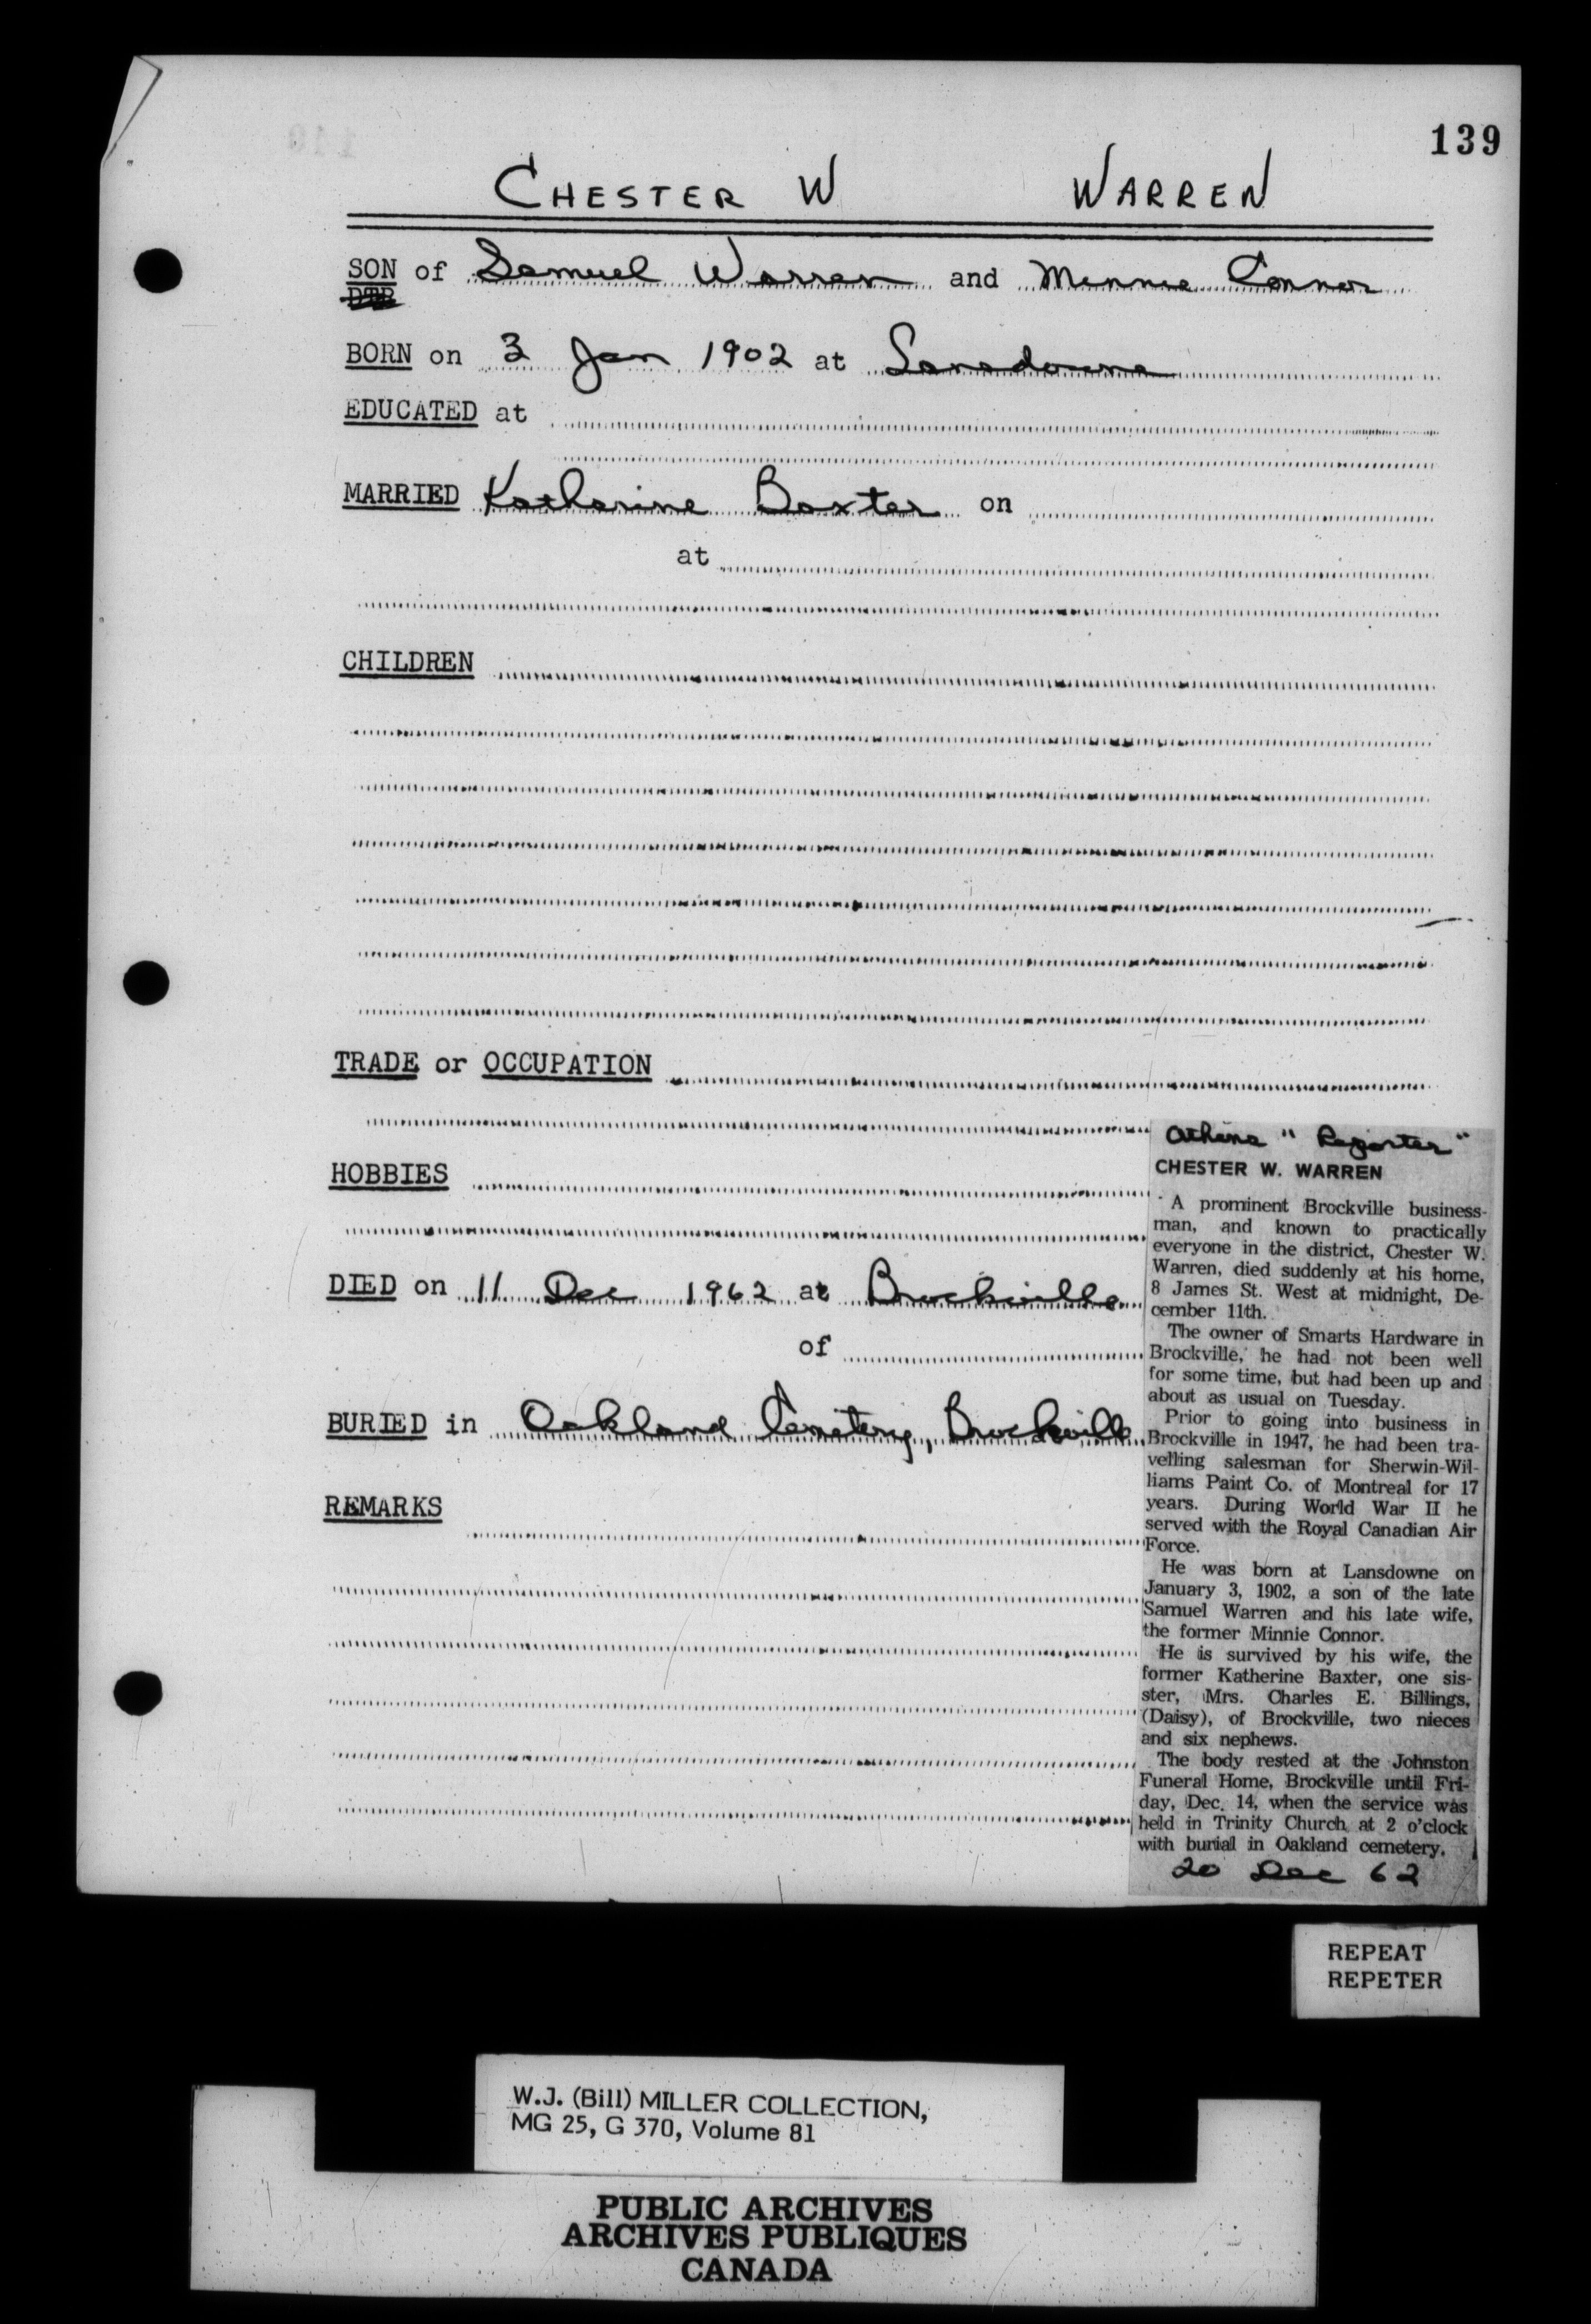 139
CHESTER W WARREN
SON of Samuel Warren and Minnie Connor
DTR
BORN on 3 Jan 1902 at Lansdowne
EDUCATED at
MARRIED Katherine Baxter on
at
CHILDREN
TRADE or OCCUPATION
HOBBIES
DIED on 11 Dec 1962 at Brockville
of
BURIED in Oakland Cemetery, Brockville
REMARKS
Athens "Reporter"
CHESTER W. WARREN
A prominent Brockville business-
man, and known to practically
everyone in the district, Chester W.
Warren, died suddenly at his home,
8 James St. West at midnight, De-
cember 11th.
The owner of Smarts Hardware in
Brockville, he had not been well
for some time, but had been up and
about as usual on Tuesday.
Prior to going into business in
Brockville in 1947, he had been tra-
velling salesman for Sherwin-Wil-
liams Paint Co. of Montreal for 17
years. During World War II he
served with the Royal Canadian Air
Force.
He was born at Lansdowne on
January 3, 1902, a son of the late
Samuel Warren and his late wife,
the former Minnie Connor.
He is survived by his wife, the
former Katherine Baxter, one sis-
ter, Mrs. Charles E. Billings,
(Daisy), of Brockville, two nieces
and six nephews.
The body rested at the Johnston
Funeral Home, Brockville until Fri-
day, Dec. 14, when the service was
held in Trinity Church at 2 o'clock
with burial in Oakland cemetery.
20 Dec 62
REPEAT
REPETER
W.J. (Bill) MILLER COLLECTION,
MG 25, G 370, Volume 81
PUBLIC ARCHIVES
ARCHIVES PUBLIQUES
CANADA